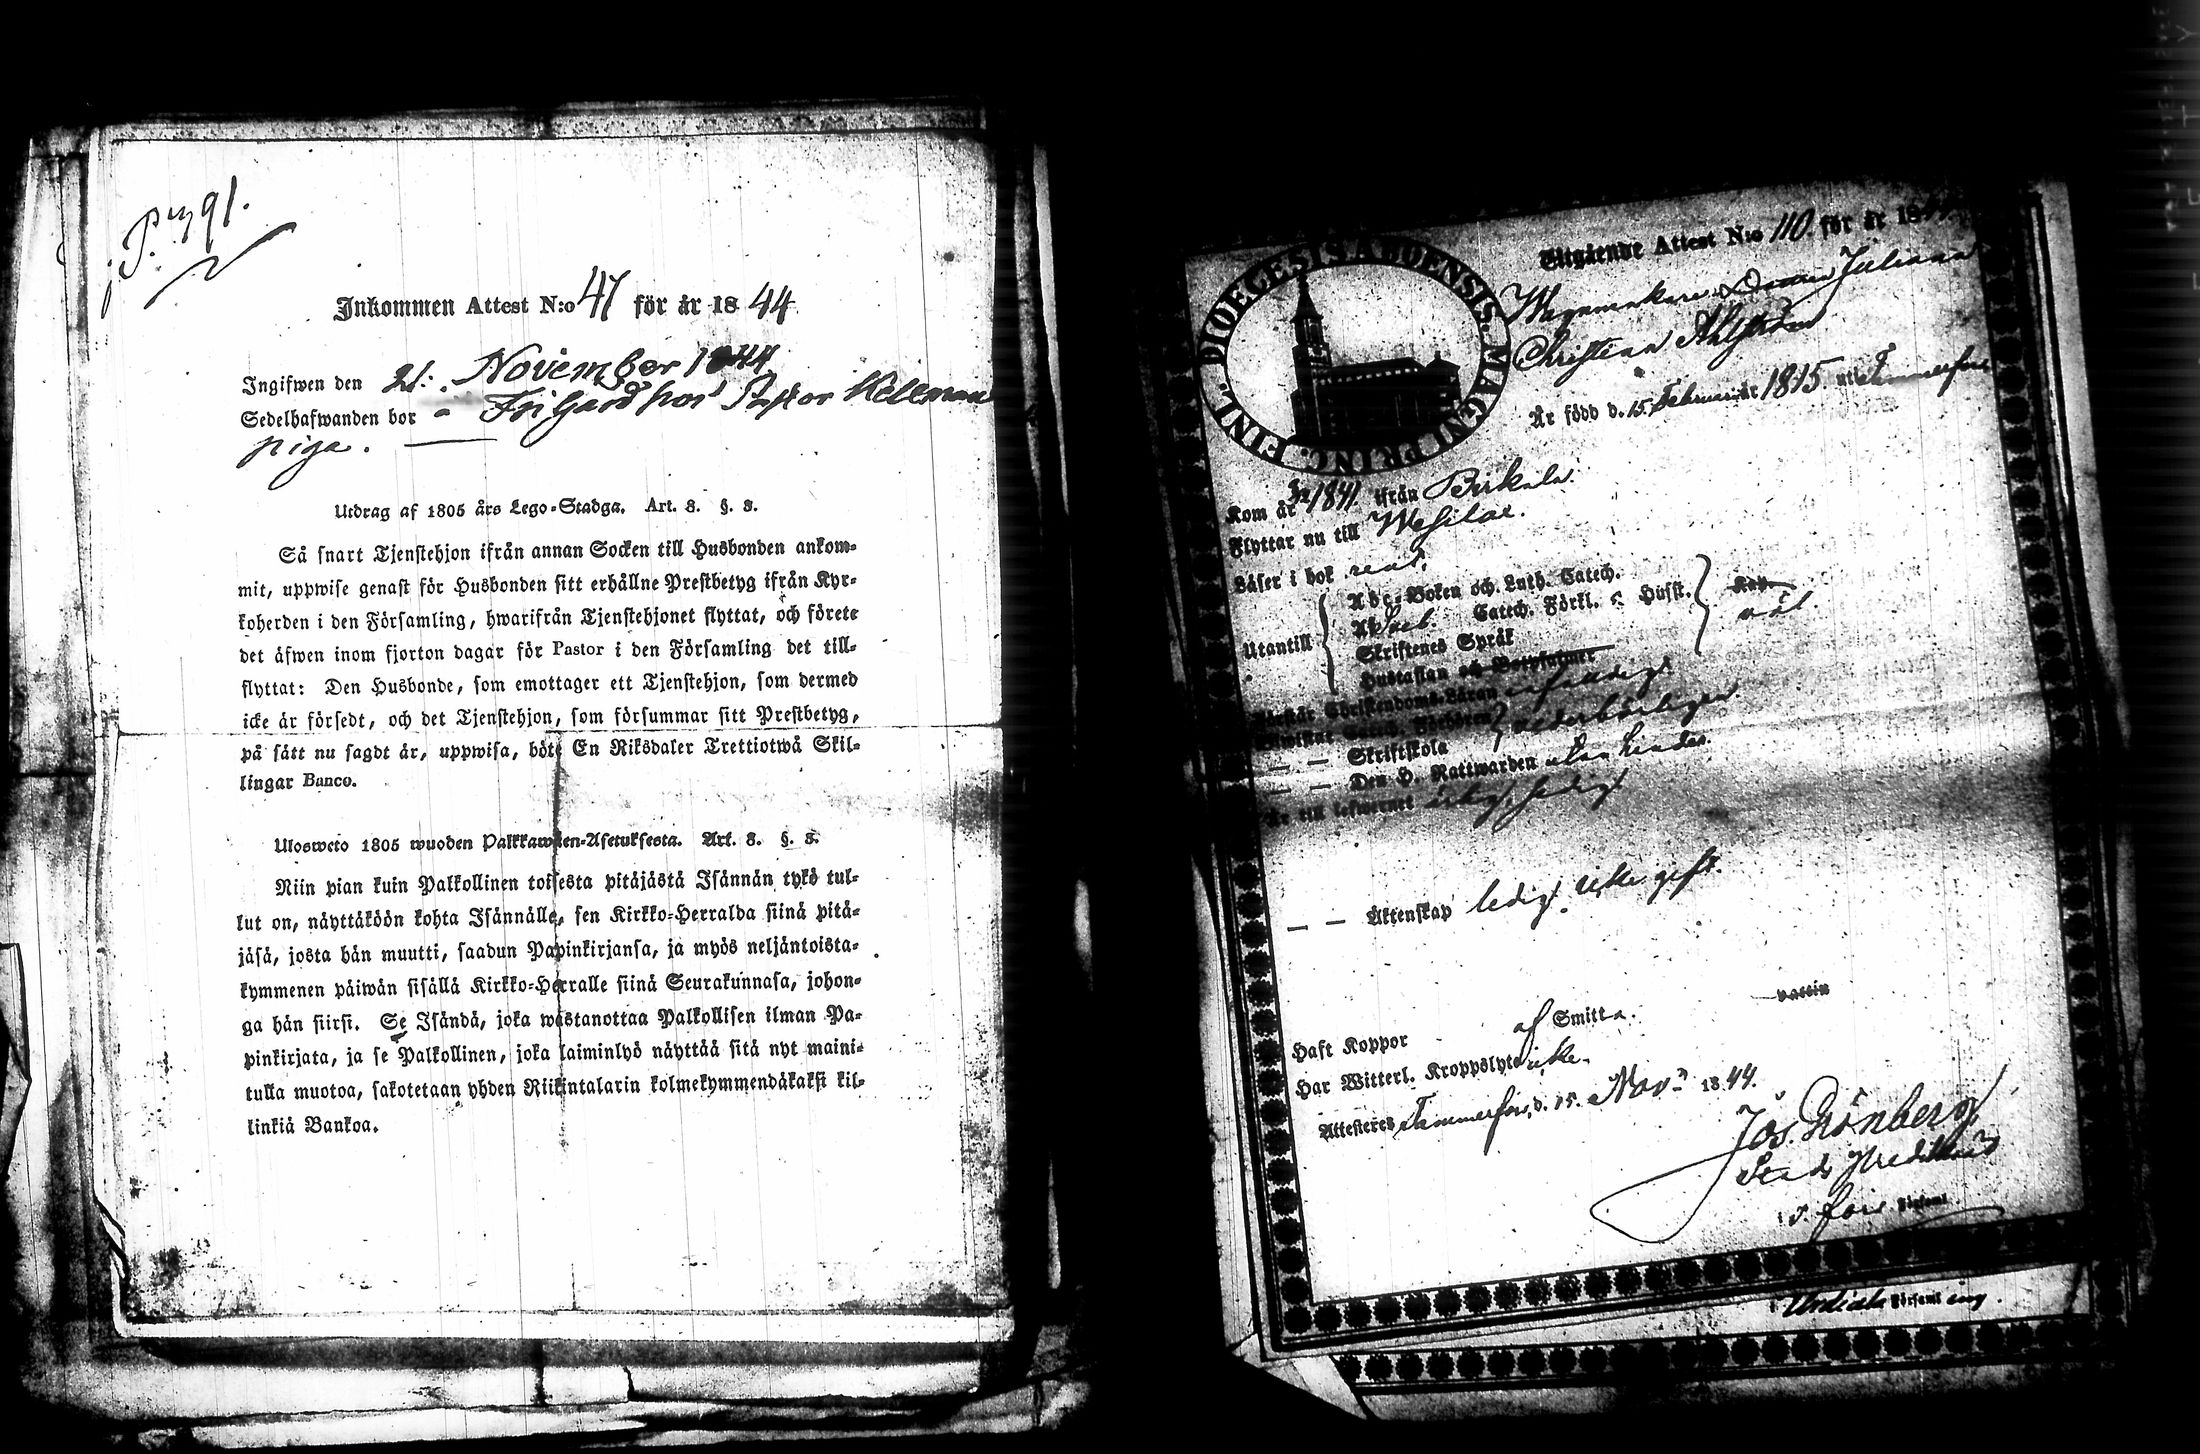 P. 791.
Inkommen Attest N:o 47 för år 1844
Ingifwen den 21: November 1844
Sedelhafwanden bor - Frigård hos Pastor Hellman
piga.
Utdrag af 1805 års Lego-Stadga. Art. 8. §. 3.
Så snart Tjenstehjon ifrån annan Socken till Husbonden ankom-
mit, uppwise genast för Husbonden sitt erhållne Prestbetyg ifrån Kyr-
koherden i den Församling, hwarifrån Tjenstehjonet flyttat, och förete
det äfwen inom fjorton dagar för Pastor i den Församling det till-
flyttat: Den Husbonde, som emottager ett Tjenstehjon, som dermed
icke är försedt, och det Tjenstehjon, som försummar sitt Prestbetyg,
på sätt nu sagdt är, uppwisa, böte En Riksdaler Trettiotwå Skil-
lingar Banco.
Ulosweto 1805 wuoden Palkkawäen-Asetuksesta. Art. 8. §. 3.
Niin pian kuin Palkollinen toisesta pitäjästä Isännän tykö tul-
lut on, näyttäköön kohta Isännälle, sen Kirkko-Herralda siinä pitä-
jäsä, josta hän muutti, saadun Papinkirjansa, ja myös neljäntoista-
kymmenen päiwän sisällä Kirkko-Herralle siinä Seurakunnasa, johon-
ga hän siirsi. Se Isändä, joka wastanottaa Palkollisen ilman Pa-
pinkirjata, ja se Palkollinen, joka laiminlyö näyttää sitä nyt maini-
tulla muotoa, sakotetaan yhden Riikintalarin kolmekymmendäkaksi kil-
linkiä Bankoa.
DIOECESIS ABOENSIS. MAGNI PRINC. FINL.
Utgående Attest N:o 110. för år 1844.
Juliana
Christina Ahlström
Är född d. 15 Februari år 1815. uti Tammerfors
Kom år 1841. ifrån Birkala.
Flyttar nu till Wesilax.
Läser i bok rent.
Utantill
Abc-Boken och Luth. Catech.
Catech. Förkl. Husst.
Skriftenes Språk
Hustaflan och Botpsalmer
wäl.
Christendoms-Läran
Skriftskola
Den H. Nattwarden utan hinder.
Är till lefwernet ärlig.
— — Äktenskap ledig. icke gift.
Haft Koppor af Smitta. vaccin
Har Witterl. Kroppslyte icke.
Attesteres Tammerfors, d. 15. Nov. 1844.
Jos. Grönberg
i T. fors Församl.
i Urdiala Församling.